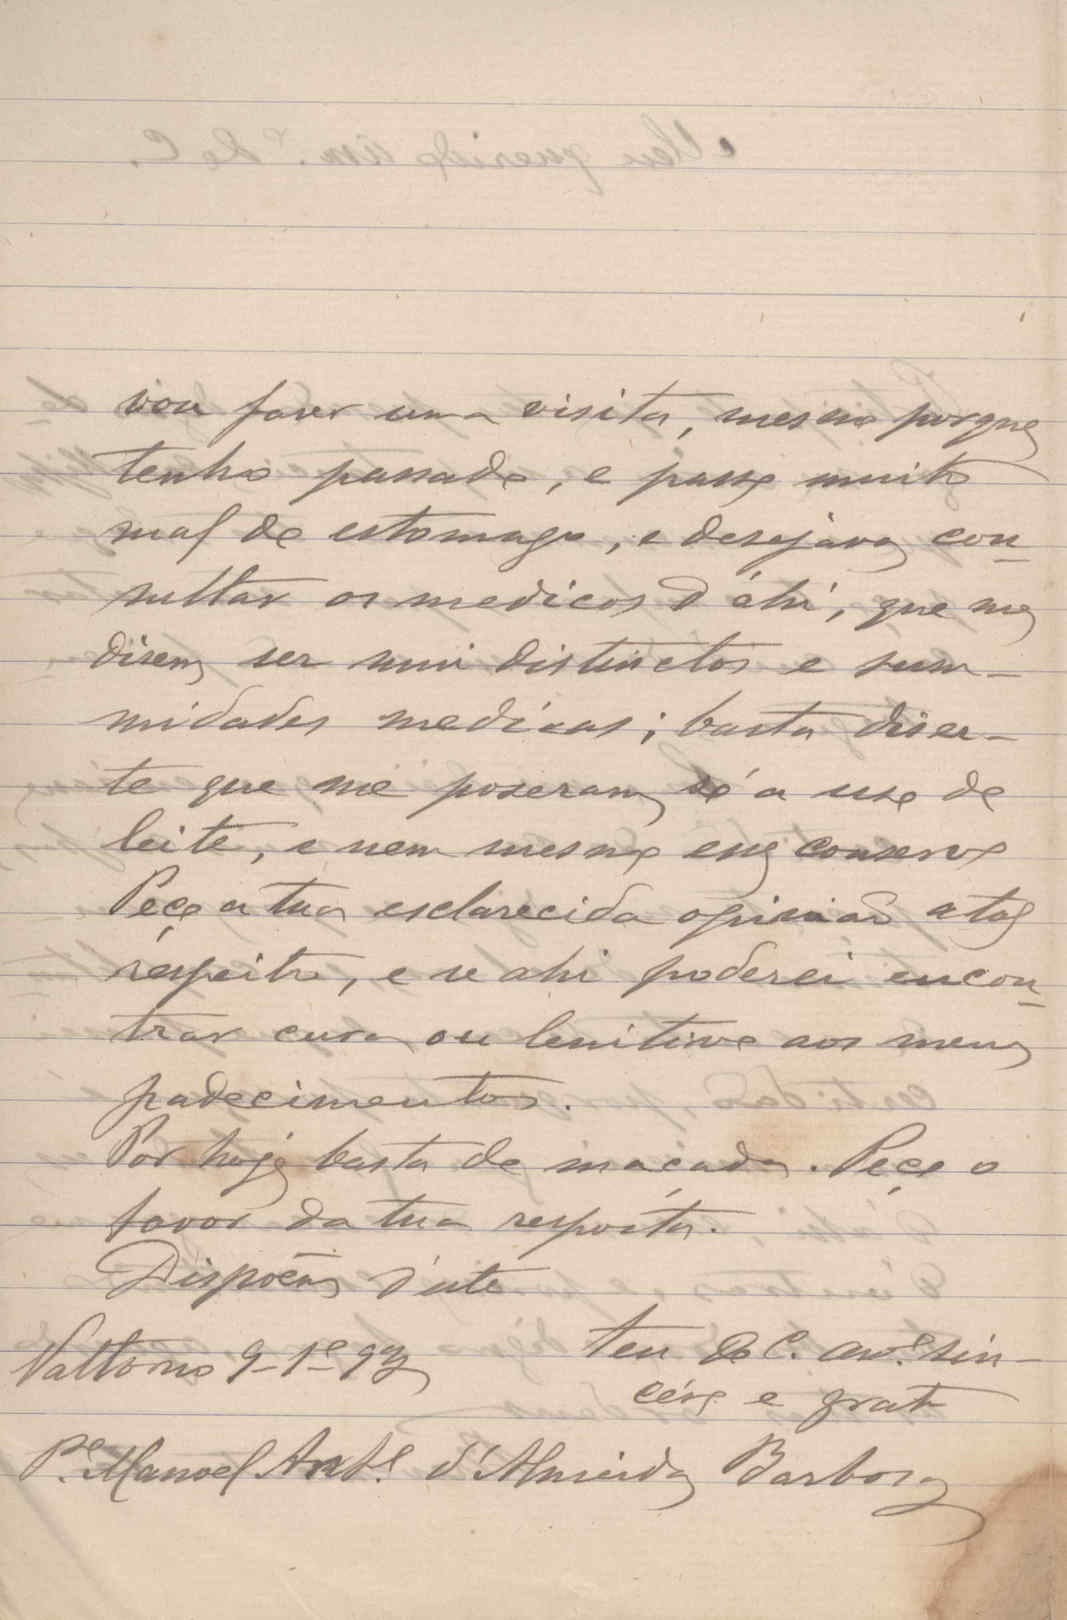 vou faser uma visita, mesmo porque
tenho passado, e passo muito
mal de estomago, e desejava con-
sultar os medicos d'ahi, que me
disem ser mui distinctos e sum-
midades medicas; basta diser-
te que me poseram só a uso de
leite, e nem mesmo esse conservo
Peço a tua esclarecida opinião a tal
respeito, e se ahi poderei encon-
trar cura ou lenitivo aos meus
padecimentos.
Por hoje basta de maçada. Peço o
favor da tua resposta.
Dispoem d'este
teu Del. am.º sin-
Valtorno 9-1º-93
cero e grato
P.e Manoel Ant.º d'Almeida Barbosa